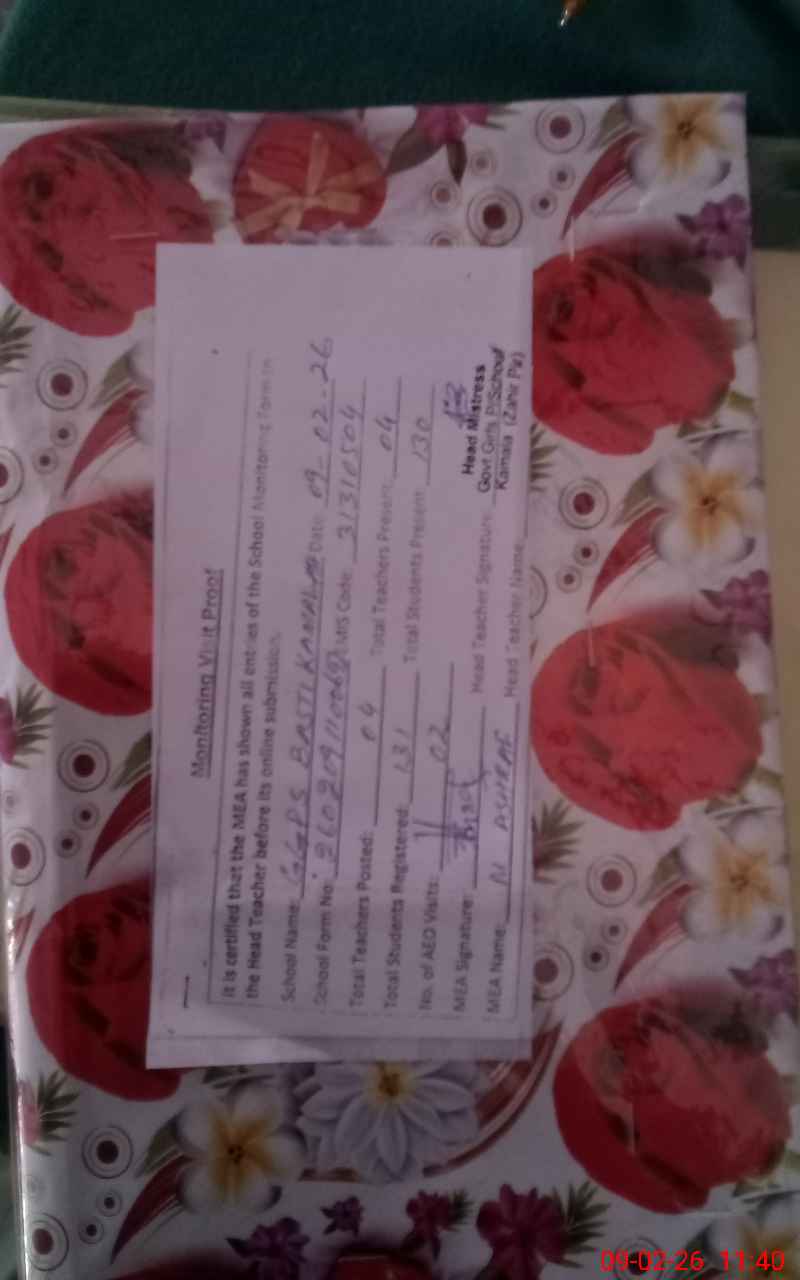 Monitoring Visit Proof
It is certified that the MEA has shown all entries of the School Monitoring Form to
the Head Teacher before its online submission.
School Name: GGPS BASTI KAMALA Date: 09-02-26
School Form No: EMIS Code: 31310504
Total Teachers Posted: 04 Total Teachers Present: 04
Total Students Registered: 131 Total Students Present: 130
No. of AEO Visits: 02
MEA Signature: Head Teacher Signature:
Head Mistress
Govt Girls P/School
Kamala (Zahir Pir)
MEA Name: M ASHRAF Head Teacher Name:
09-02-26 11:40